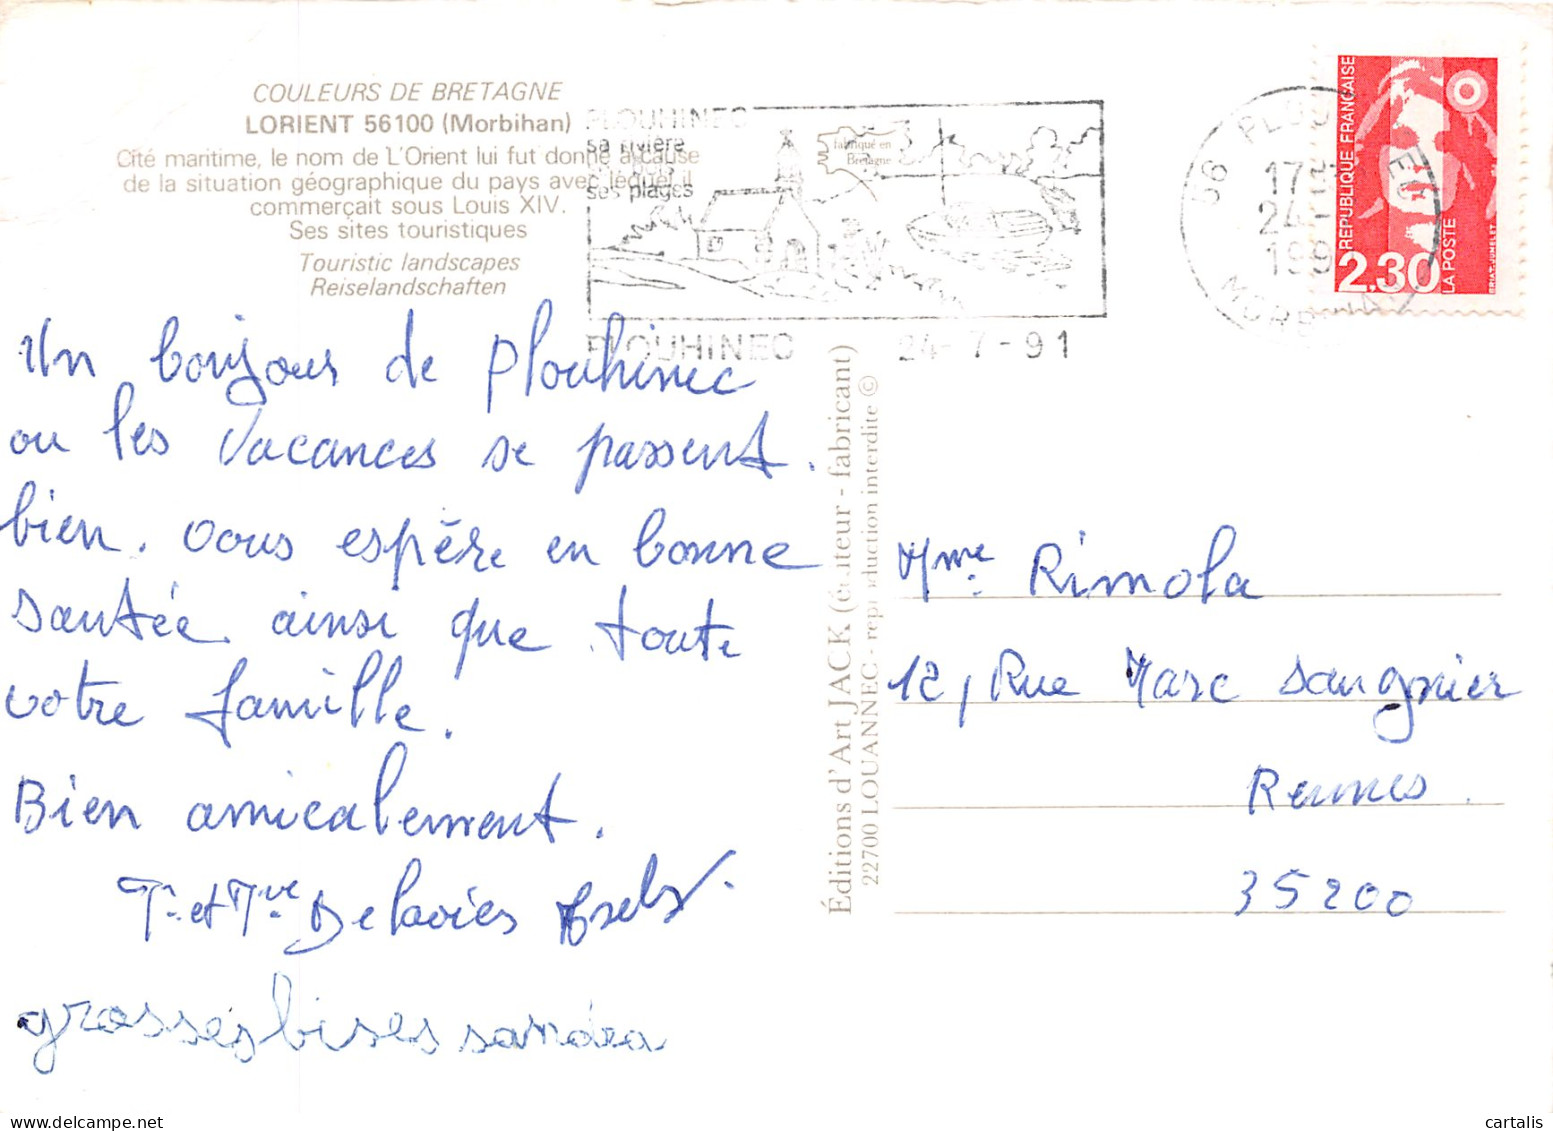 COULEURS DE BRETAGNE
LORIENT 56100 (Morbihan)
Cité maritime, le nom de L'Orient lui fut donné à cause
de la situation géographique du pays avec lequel il
commerçait sous Louis XIV.
Ses sites touristiques
Touristic landscapes
Reiselandschaften
PLOUHINEC
sa rivière
ses plages
fabriqué en
Bretagne
PLOUHINEC 24-7-91
56 PLOU EC
17
24-
199
MORBIHAN
REPUBLIQUE FRANÇAISE
2,30
LA POSTE
BRIAT. JUMELET
Un bonjour de Plouhinec
ou les vacances se passent.
bien. Vous espère en bonne
santée ainsi que toute
votre famille.
Bien amicalement.
Mr et Mme Delavies
grosses bises sandra
Éditions d'Art JACK (éditeur - fabricant)
22700 LOUANNEC - reproduction interdite ©
Mme Rimola
12, Rue Marc Sangnier
Rennes.
35200
cartalis